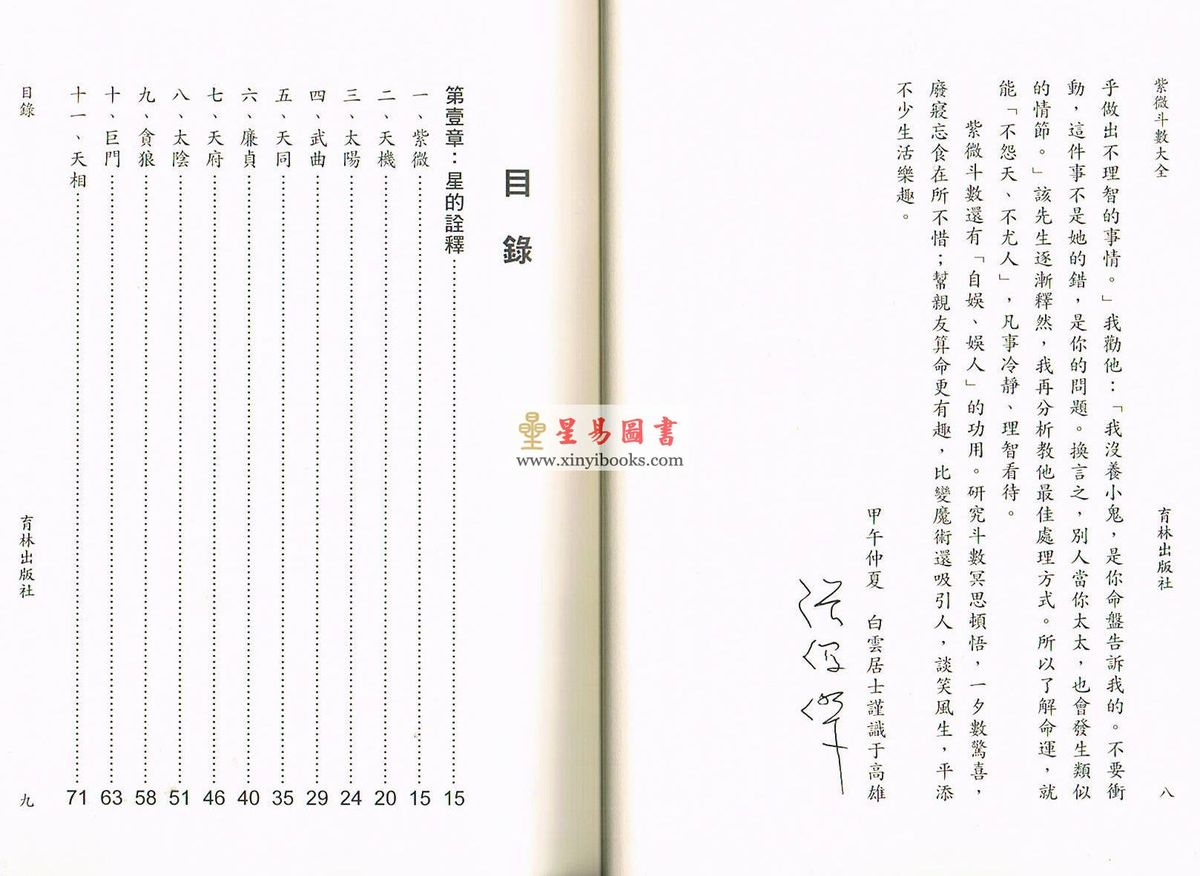 紫微斗數大全
育林出版社
八
乎做出不理智的事情。」我勸他：「我沒養小鬼，是你命盤告訴我的。不要衝
動，這件事不是她的錯，是你的問題。換言之，別人當你太太，也會發生類似
的情節。」該先生逐漸釋然，我再分析教他最佳處理方式。所以了解命運，就
能「不怨天、不尤人」，凡事冷靜、理智看待。
紫微斗數還有「自娛、娛人」的功用。研究斗數冥思頓悟，一夕數驚喜，
廢寢忘食在所不惜；幫親友算命更有趣，比變魔術還吸引人，談笑風生，平添
不少生活樂趣。
甲午仲夏　白雲居士謹識于高雄
星易圖書
www.xinyibooks.com
目錄
第壹章：星的詮釋……15
一、紫微……15
二、天機……20
三、太陽……24
四、武曲……29
五、天同……35
六、廉貞……40
七、天府……46
八、太陰……51
九、貪狼……58
十、巨門……63
十一、天相……71
目錄
育林出版社
九